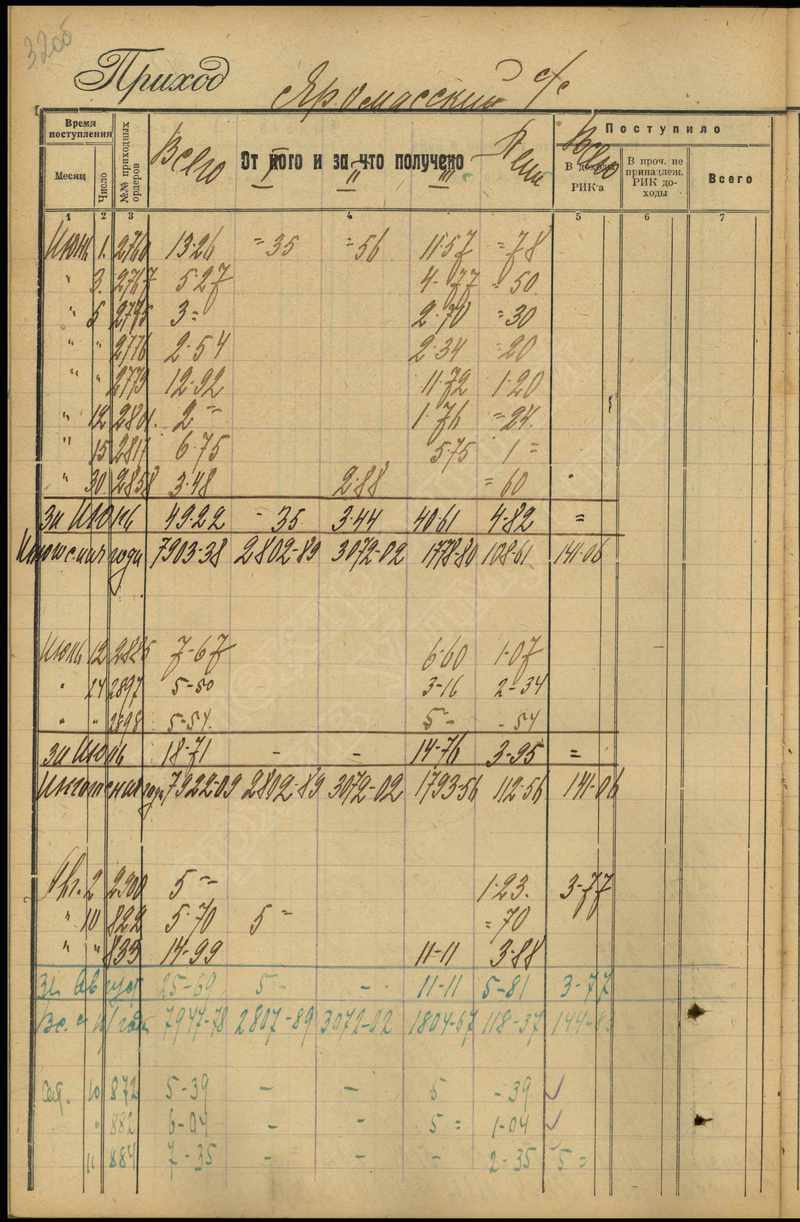 32об
Приход Яромасский с/с
Время поступления №№ приходных ордеров Всего От кого и за что получено Пени Поступило
Месяц Число I II III В доход РИК'а Всего В проч. не принадлеж. РИК доходы Всего
1 2 3 4 5 6 7
Июнь 1. 2760 13-26 =35 =56 11-57 =78
" 3. 2767 5-27 4-77 =50
" 5 2775 3= 2-70 =30
" " 2776 2-54 2-34 =20
" " 2779 12-92 11-72 1-20
" 12 2801. 2= 1-76 =24.
" 15 2817 6-75 5-75 1=
" 30 2858 3-48 2-88 =60
За Июнь 49-22 -35 3-44 40-61 4-82 =
Итого с нач года 7903-38 2802-89 3072-02 1778-80 108-61 141-06
Июль 12 2885 7-67 6-60 1-07
" 24 2897 5-50 3-16 2-34
" " 2898 5-54. 5- -54
За Июль 18-71 - - 14-76 3-95 =
Итого с нач года 7922-09 2802-89 3072-02 1793-56 112-56 141-06
Авг. 2 2900 5= 1-23. 3-77
" 10 822 5-70 5= =70
" " 833 14-99 11-11 3-88
За Август 25-69 5- - 11-11 5-81 3-77
Вс. с н/года 7947-78 2807-89 3072-02 1804-67 118-37 144-83
Сент. 10 872 5-39 - - 5 -39
" 882 6-04 - - 5= 1-04
11 884 7-35 - - - 2-35 5=